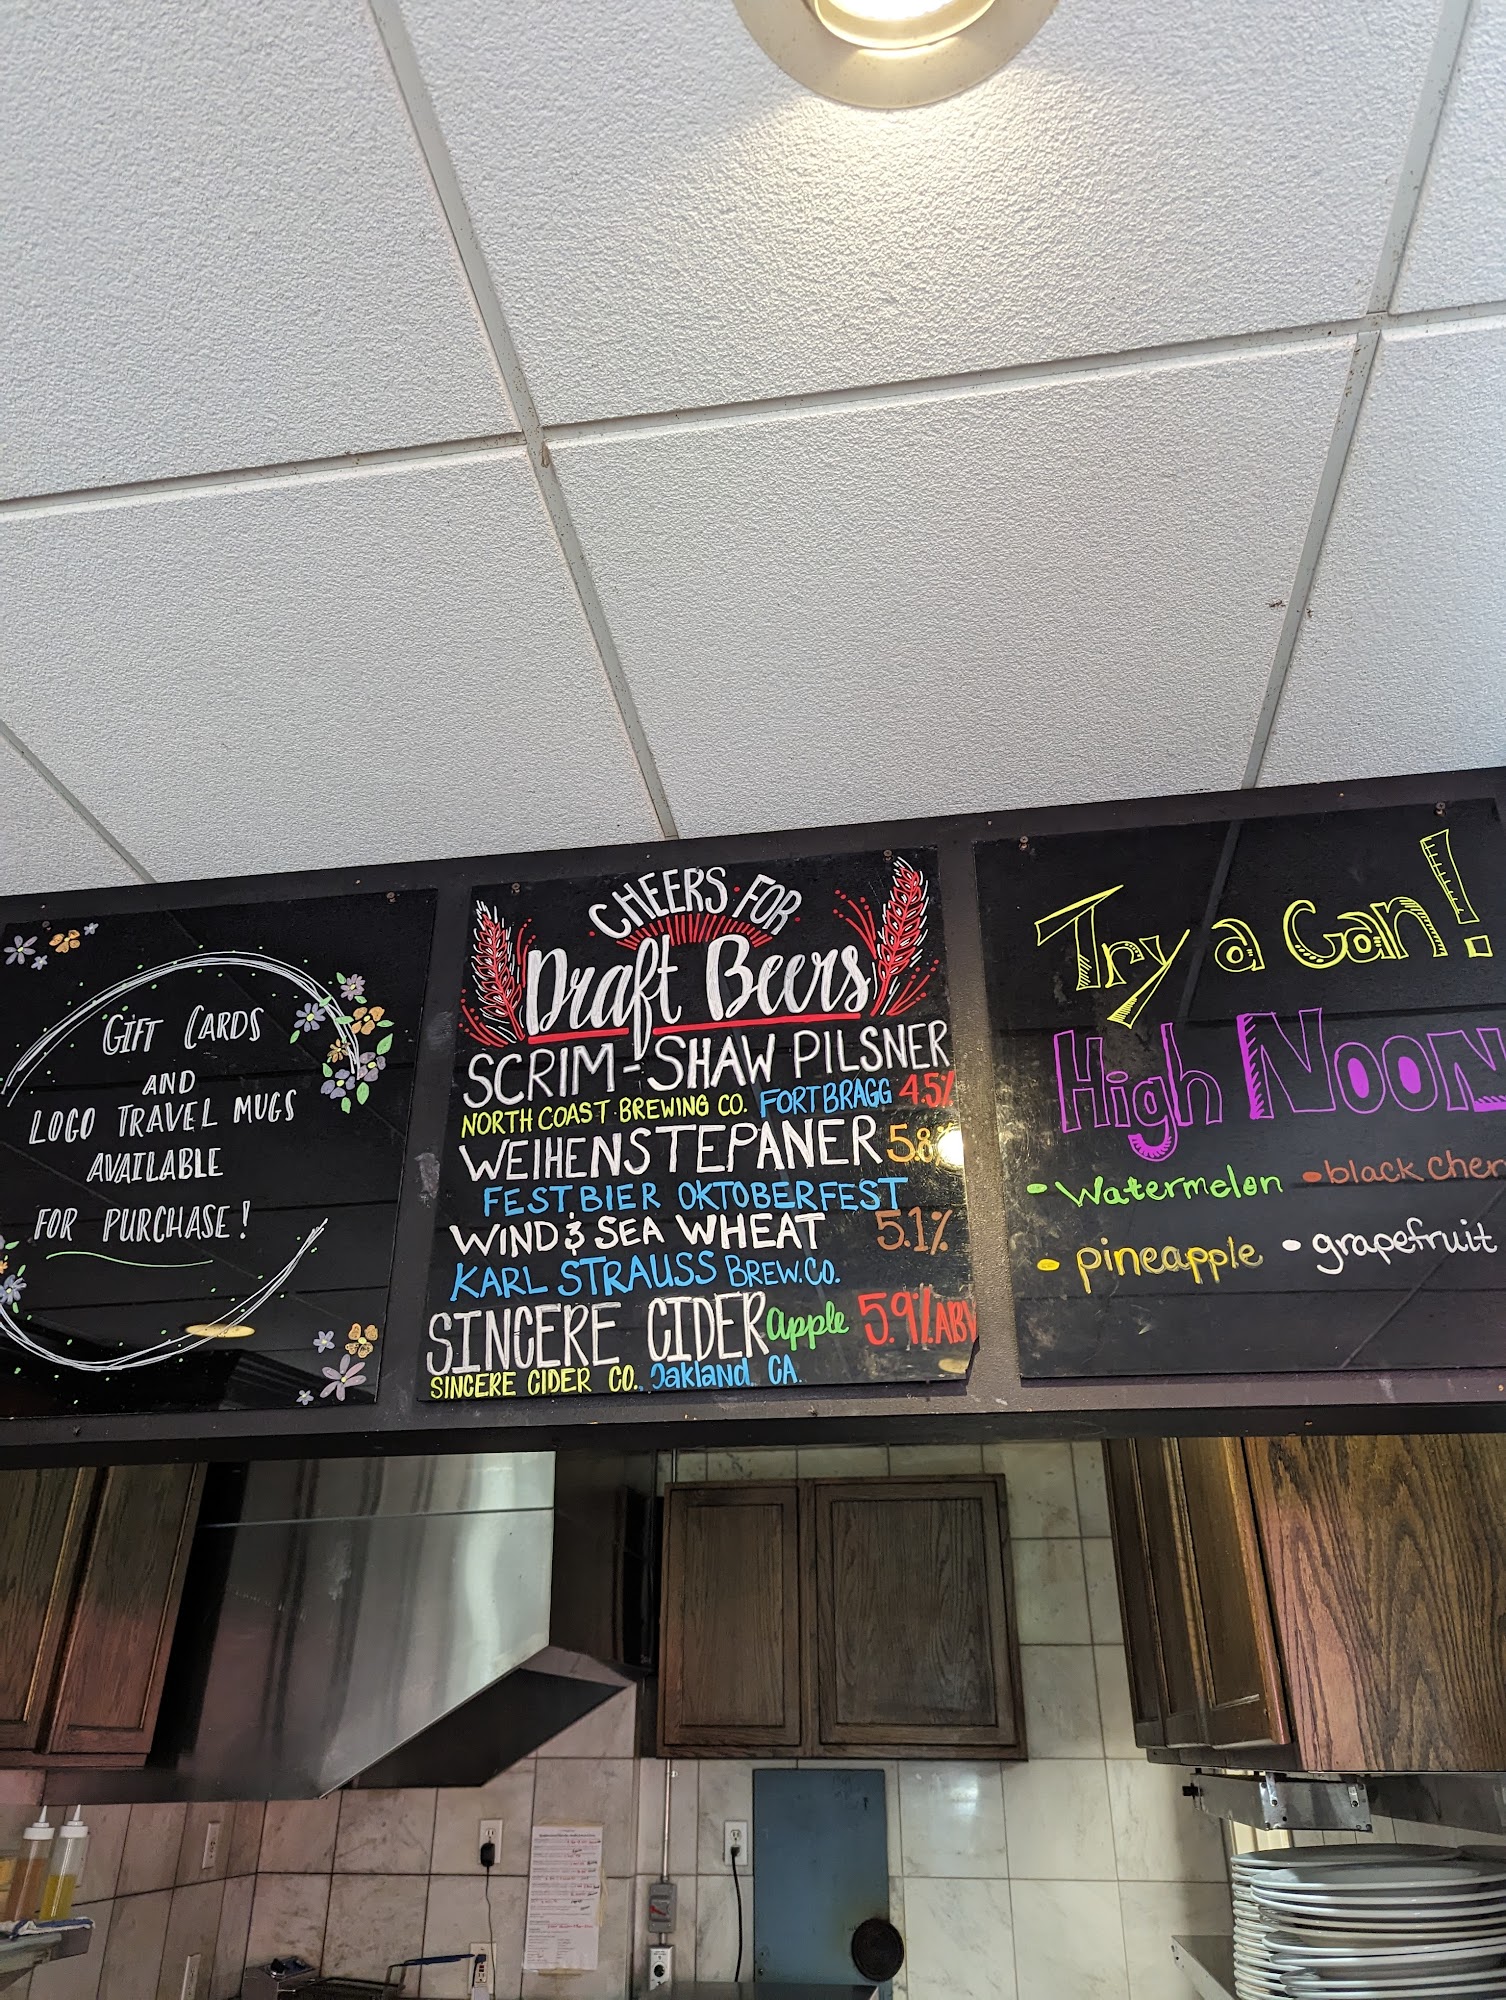 GIFT CARDS
AND
LOGO TRAVEL MUGS
AVAILABLE
FOR PURCHASE!
CHEERS FOR
Draft Beers
SCRIM-SHAW PILSNER
NORTH COAST BREWING CO. FORT BRAGG 4.5%
WEIHENSTEPANER 5.8%
FESTBIER OKTOBERFEST
WIND & SEA WHEAT 5.1%
KARL STRAUSS BREW. CO.
SINCERE CIDER apple 5.9% ABV
SINCERE CIDER CO. Oakland, CA.
Try a Can!
High NOON
• Watermelon • black cher
• pineapple • grapefruit